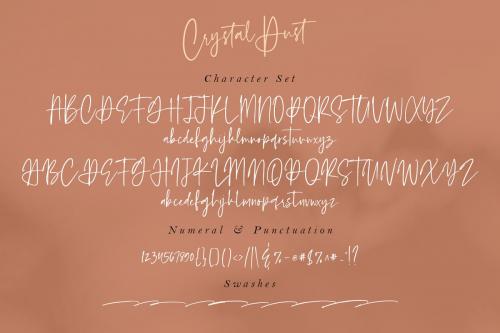 Crystal Dust
Character Set
ABCDEFGHIJKLMNOPQRSTUVWXYZ
abcdefghijklmnopqrstuvwxyz
ABCDEFGHIJKLMNOPQRSTUVWXYZ
abcdefghijklmnopqrstuvwxyz
Numeral & Punctuation
1234567890{}[]()<>/|\&%-@#$%^*_"!?
Swashes